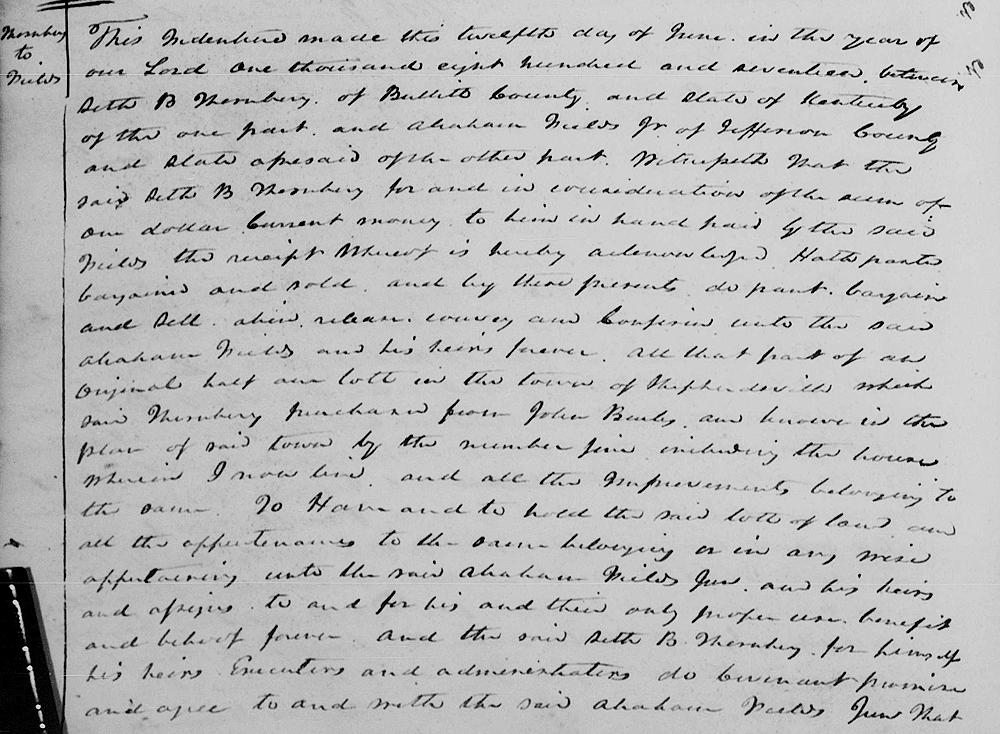 Thornbery
to
Fields
This Indenture made this twelfth day of June in the year of
our Lord One thousand eight hundred and seventeen, between
Seth B Thornbery of Bullitt County and State of Kentucky
of the one part. and Abraham Fields Jr. of Jefferson County
and State aforesaid of the other part. Witnesseth that the
said Seth B Thornbery for and in consideration of the sum of
one dollar Current money to him in hand paid by the said
Fields the receipt whereof is hereby acknowledged Hath parted
bargained and sold and by these presents do part. bargain
and Sell. alien, release. convey and Confirm unto the said
Abraham Fields and his heirs forever. all that part of an
Original half acre lott in the town of Shepherdsville which
said Thornbery purchased from John and known in the
plan of said town by the number five including the house
wherein I now live. and all the Improvements belonging to
the same. To Have and to hold the said lott of land and
all the appurtenances to the same belonging or in any wise
appertaining unto the said Abraham Fields Jun. and his heirs
and assigns to and for his and their only proper use. benefit
and behoof forever. And the said Seth B. Thornbery for himself
his heirs Executors and administrators do Covenant promise
and agree to and with the said Abraham Fields Jun that